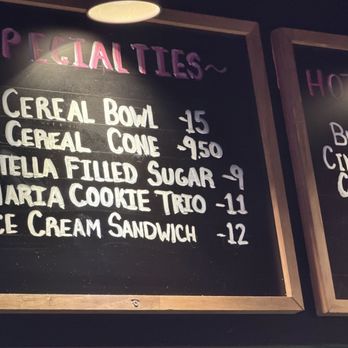 SPECIALTIES~
CEREAL BOWL -15
CEREAL CONE -9.50
TELLA FILLED SUGAR -9
MARIA COOKIE TRIO -11
CE CREAM SANDWICH -12
HOT